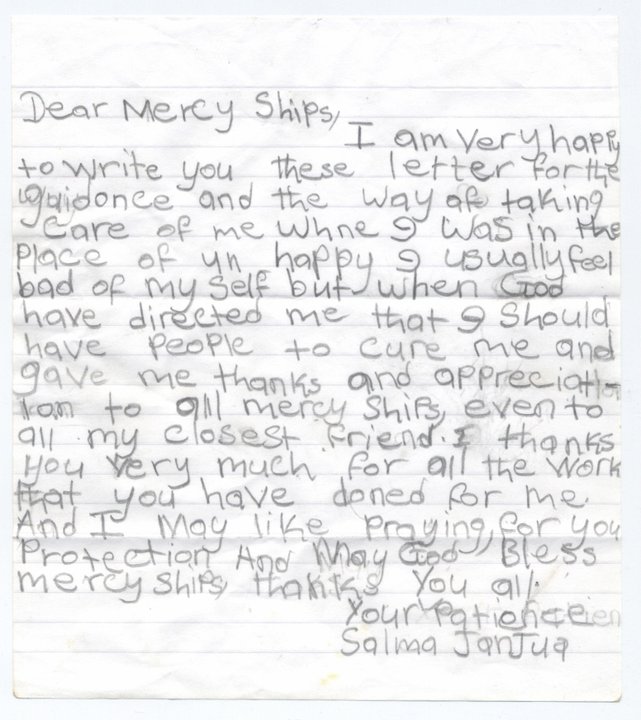 Dear Mercy Ships,
I am very happy
to write you these letter for the
guidonce and the way of taking
Care of me whne I was in the
Place of un happy I usually feel
bad of my self but when God
have directed me that I should
have people to cure me and
gave me thanks and appreciation
to all mercy ships, even to
all my closest friend. I thanks
you very much for all the work
that you have doned for me.
And I May like praying for you
Protection And May God Bless
mercy ships, thanks you all.
Your
Salma Janjua